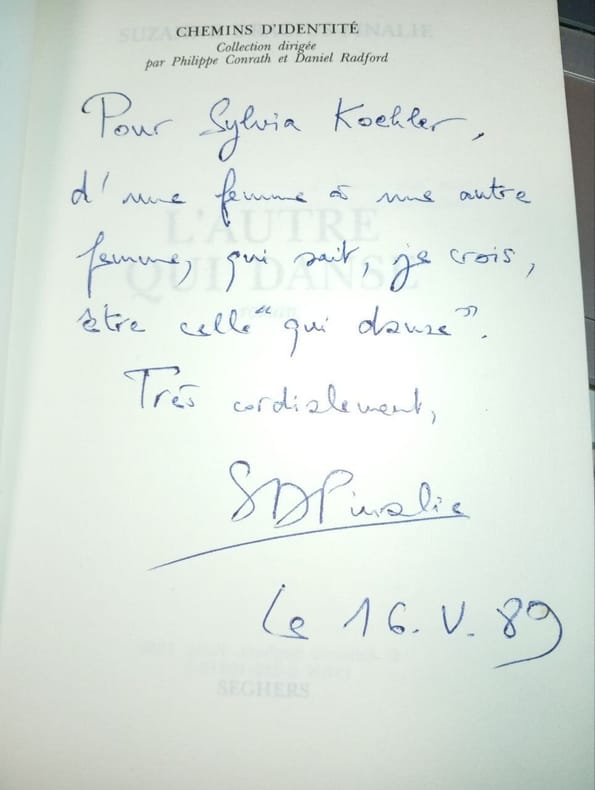 CHEMINS D'IDENTITÉ
Collection dirigée
par Philippe Conrath et Daniel Radford
Pour Sylvia Koehler,
d'une femme à une autre
femme, qui sait, je crois,
être celle "qui danse".
Très cordialement,
SDPinalie
Le 16. V. 89
L'AUTRE
QUI DANSE
roman
SEGHERS